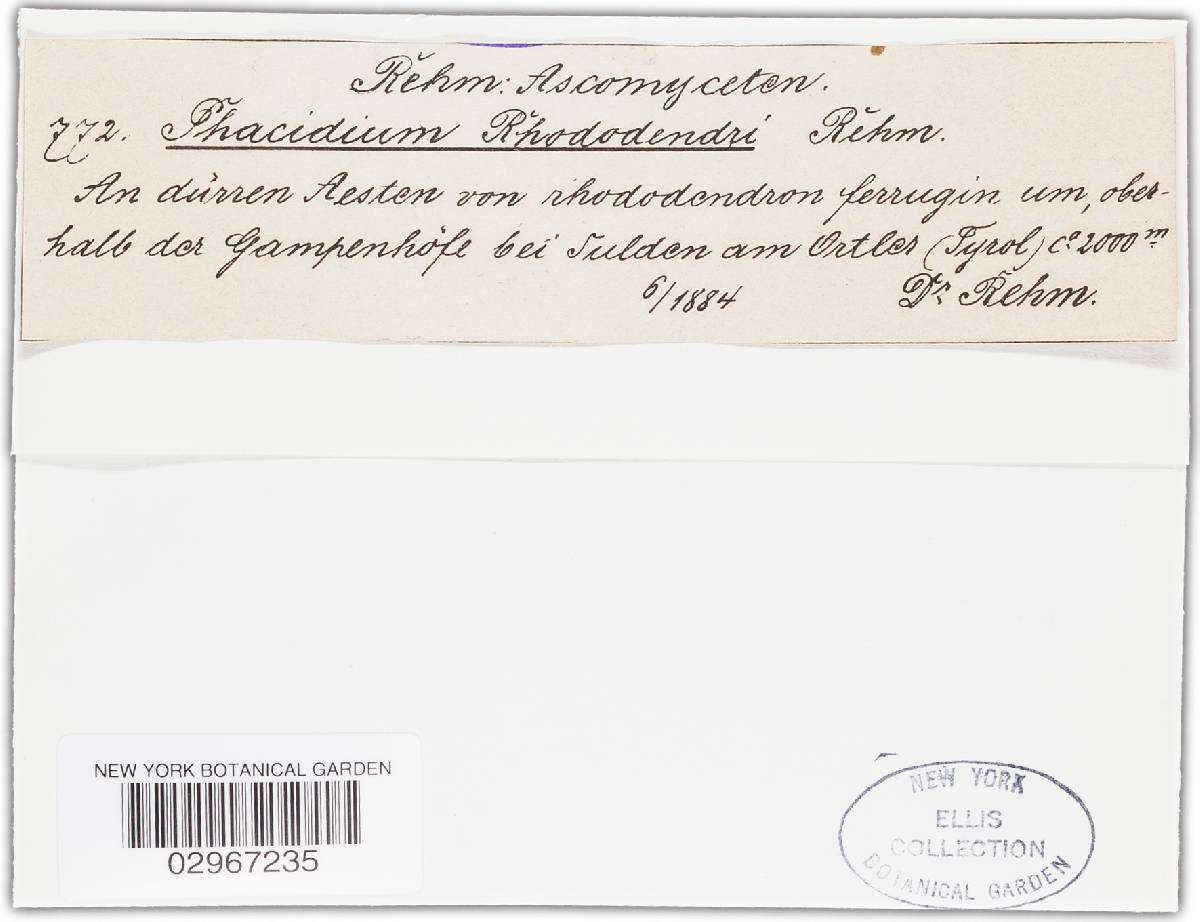 Rehm: Ascomyceten.
772. Phacidium Rhododendri Rehm.
An dürren Aesten von rhododendron ferrugin um, ober-
halb der Gampenhöfe bei Sulden am Ortler (Tyrol) ca 2000 m
6/1884 Dr. Rehm.
NEW YORK BOTANICAL GARDEN
02967235
NEW YORK
ELLIS
COLLECTION
BOTANICAL GARDEN